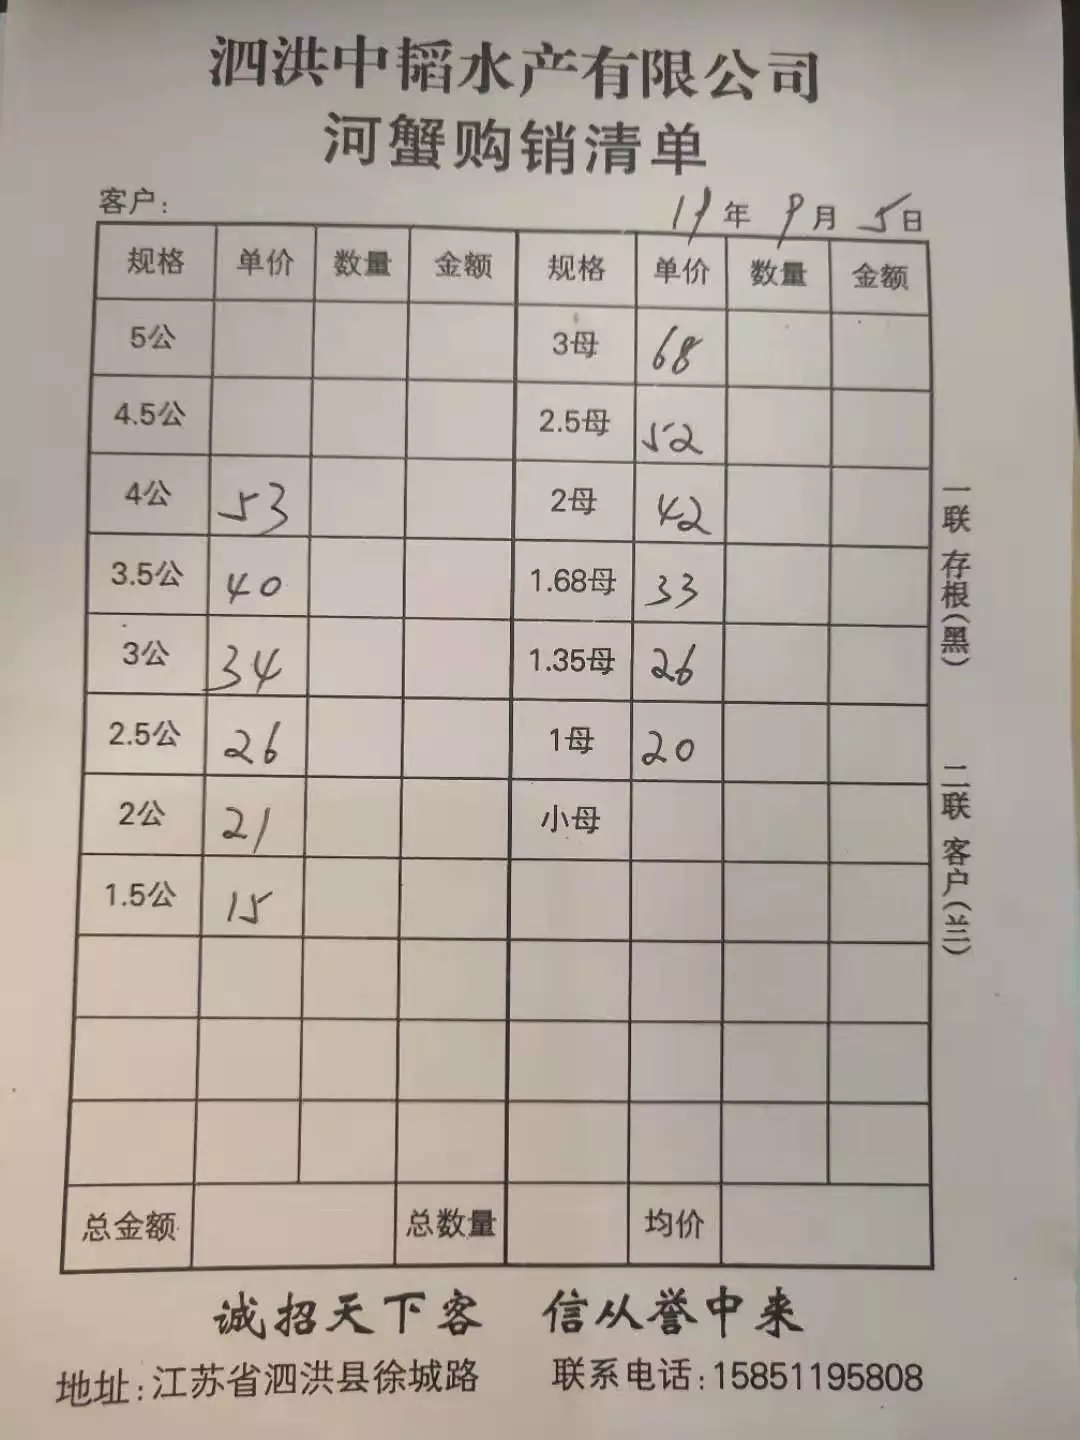 泗洪中韬水产有限公司
河蟹购销清单
客户: 19年9月5日
规格 单价 数量 金额 规格 单价 数量 金额
5公 3母 68
4.5公 2.5母 52
4公 53 2母 42
3.5公 40 1.68母 33
3公 34 1.35母 26
2.5公 26 1母 20
2公 21 小母
1.5公 15
总金额 总数量 均价
一联 存根(黑) 二联 客户(兰)
诚招天下客 信从誉中来
地址:江苏省泗洪县徐城路 联系电话:15851195808